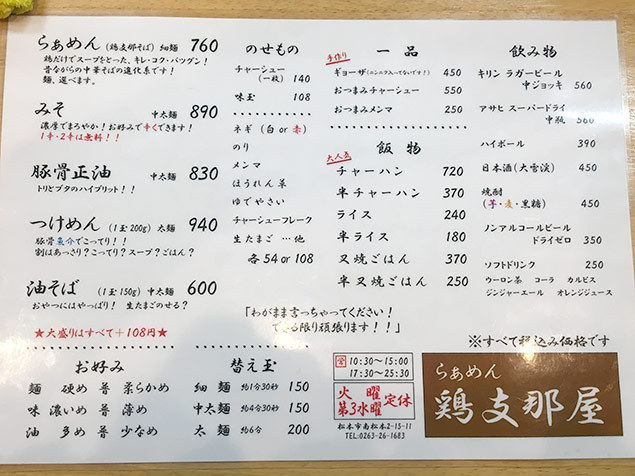 らぁめん (鶏支那そば) 細麺 760
鶏だけでスープをとった、キレ・コク・バツグン!
昔ながらの中華そばの進化系です!
麺、選べます。
みそ 中太麺 890
濃厚でまろやか!お好みで辛くできます!
1辛・2辛は無料!!
豚骨正油 中太麺 830
トリとブタのハイブリット!!
つけめん (1玉200g) 太麺 940
豚骨魚介でこってり!!
割はあっさり?こってり?スープ?ごはん?
油そば (1玉150g) 中太麺 600
おやつにはやっぱり! 生たまごのせる?
★大盛りはすべて+108円★
のせもの
チャーシュー
(一枚) 140
味玉 108
ネギ(白or赤)
のり
メンマ
ほうれん草
ゆでやさい
チャーシューフレーク
生たまご …他
各54or108
一品
手作り
ギョーザ(ニンニク入ってないです!) 450
おつまみチャーシュー 550
おつまみメンマ 250
飯物
大人気
チャーハン 720
半チャーハン 370
ライス 240
半ライス 180
叉焼ごはん 370
半叉焼ごはん 250
飲み物
キリン ラガービール
中ジョッキ 560
アサヒ スーパードライ
中瓶 560
ハイボール 390
日本酒(大雪渓) 450
焼酎
(芋・麦・黒糖) 450
ノンアルコールビール
ドライゼロ 350
ソフトドリンク 250
ウーロン茶 コーラ カルピス
ジンジャーエール オレンジジュース
「わがまま言っちゃってください!
できる限り頑張ります!!」
※すべて税込み価格です
お好み
麺 硬め 普 柔らかめ
味 濃いめ 普 薄め
油 多め 普 少なめ
替え玉
細麺 約1分30秒 150
中太麺 約4分30秒 150
太麺 約6分 200
営 10:30~15:00
17:30~25:30
火曜
第3水曜 定休
松本市南松本2-15-11
TEL:0263-26-1683
らぁめん
鶏支那屋